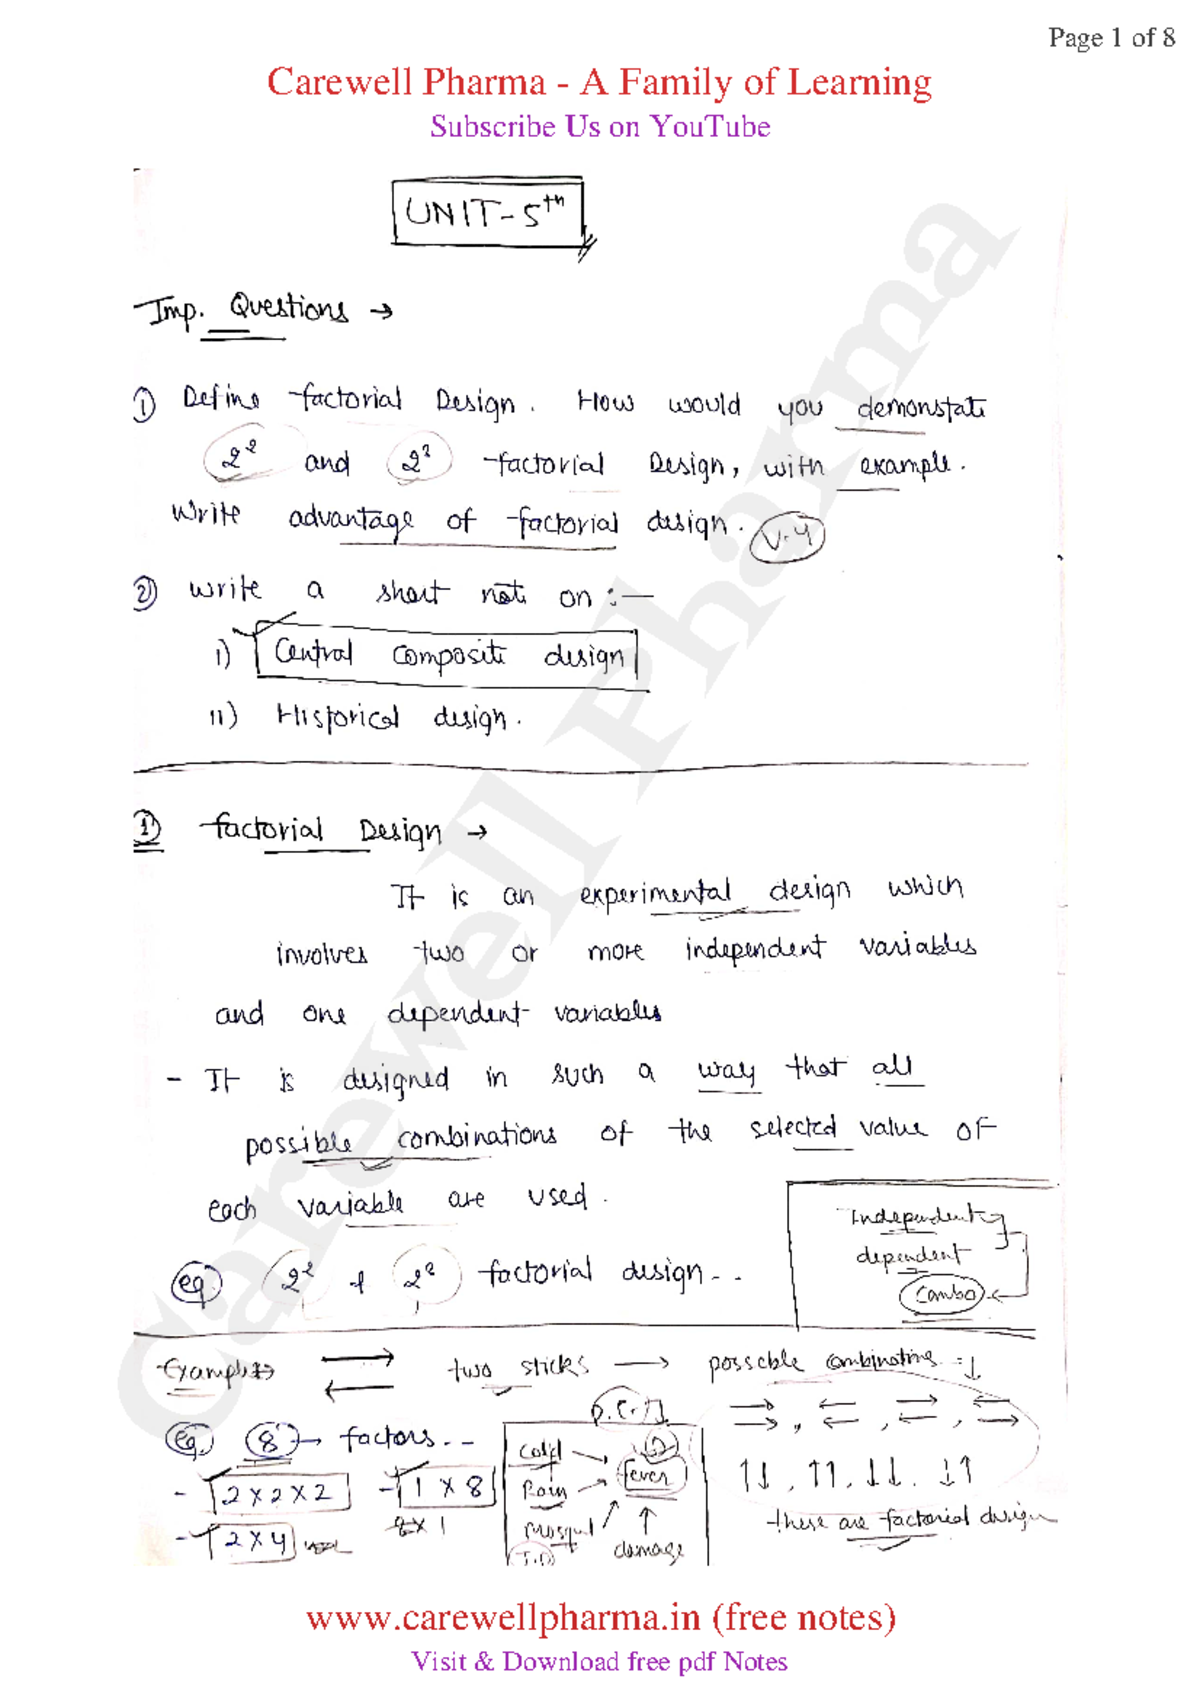 Page 1 of 8
Carewell Pharma - A Family of Learning
Subscribe Us on YouTube
UNIT-5th
Imp. Questions →
① Define factorial Design. How would you demonstate
2² and 2³ factorial Design, with example.
Write advantage of factorial design. V.Y
② write a short note on :—
i) Central composite design
ii) Historical design.
① factorial Design →
It is an experimental design which
involves two or more independent variables
and one dependent variables
- It is designed in such a way that all
possible combinations of the selected value of
each variable are used.
Independent
dependent
Combo
eg. 2² + 2³ factorial design..
Examples two sticks → possible combinations :↓
eg. 8 → factors..
- 2×2×2 - 1×8
8×1
- 2×4
Cold
Rain
fever
damage
→→, ←←, →←, ←→
↑↓, ↑↑, ↓↓, ↓↑
these are factorial design
Carewell Pharma
www.carewellpharma.in (free notes)
Visit & Download free pdf Notes